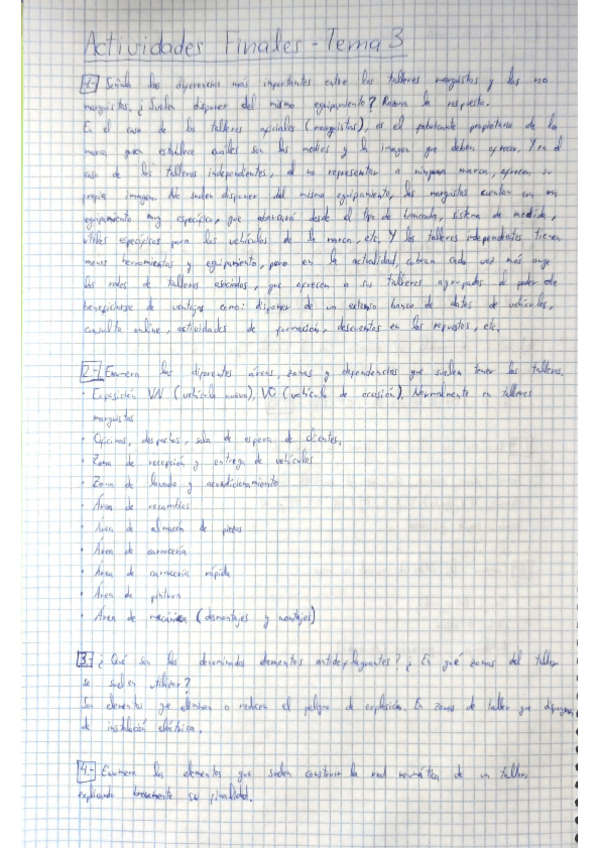 Actividades Finales - Tema 3
1.- Señala las diferencias más importantes entre los talleres marquistas y los no
marquistas, ¿Suelen disponer del mismo equipamiento? Razona la respuesta.
En el caso de los talleres oficiales (marquistas), es el fabricante propietario de la
marca quien establece cuáles son los medios y la imagen que deben ofrecer. Y en el
caso de los talleres independientes, al no representar a ninguna marca, ofrecen su
propia imagen. No suelen disponer del mismo equipamiento, los marquistas cuentan con un
equipamiento muy específico, que abarcará desde el tipo de bancada, sistema de medida,
útiles específicos para los vehículos de la marca, etc. Y los talleres independientes tienen
menos herramientas y equipamiento, pero en la actualidad, cobran cada vez más auge
las redes de talleres asociados, que ofrecen a sus talleres agrupados el poder
beneficiarse de ventajas como: disponer de un extenso banco de datos de vehículos,
consulta online, actividades de formación, descuentos en los repuestos, etc.
2.- Enumera las diferentes áreas, zonas y dependencias que suelen tener los talleres.
· Exposición VN (vehículo nuevo), VO (vehículo de ocasión), Normalmente en talleres
marquistas
· Oficinas, despachos, sala de espera de clientes,
· Zona de recepción y entrega de vehículos
· Zona de lavado y acondicionamiento
· Área de recambios
· Área de almacén de piezas
· Área de carrocería
· Área de carrocería rápida
· Área de pintura
· Área de mecánica (desmontajes y montajes)
3.- ¿Qué son los denominados elementos antideflagrantes? ¿En qué zonas del taller
se suelen utilizar?
Son elementos que eliminan o reducen el peligro de explosión. En zonas de taller que dispongan
de instalación eléctrica.
4.- Enumera los elementos que suelen constituir la red neumática de un taller
explicando brevemente su finalidad.